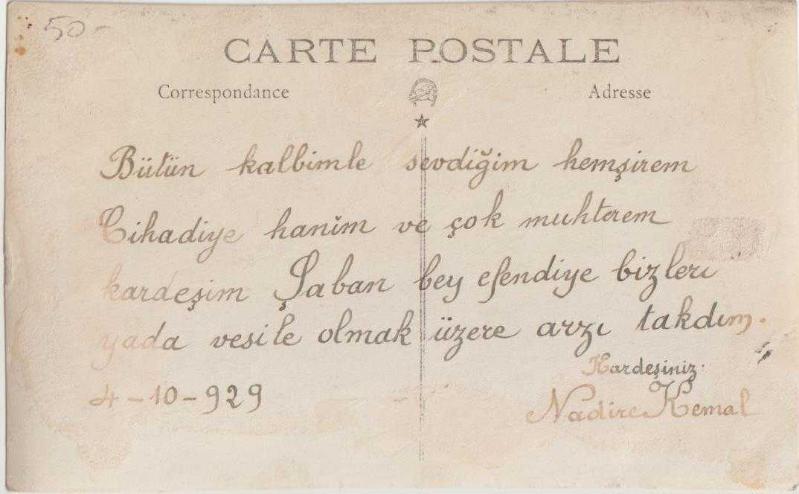 50-
CARTE POSTALE
Correspondance
Adresse
Bütün kalbimle sevdiğim hemşirem
Cihadiye hanim ve çok muhterem
kardeşim Şaban bey efendiye bizleri
yada vesile olmak üzere arzı takdım.
Kardeşiniz.
4-10-929
Nadire Kemal